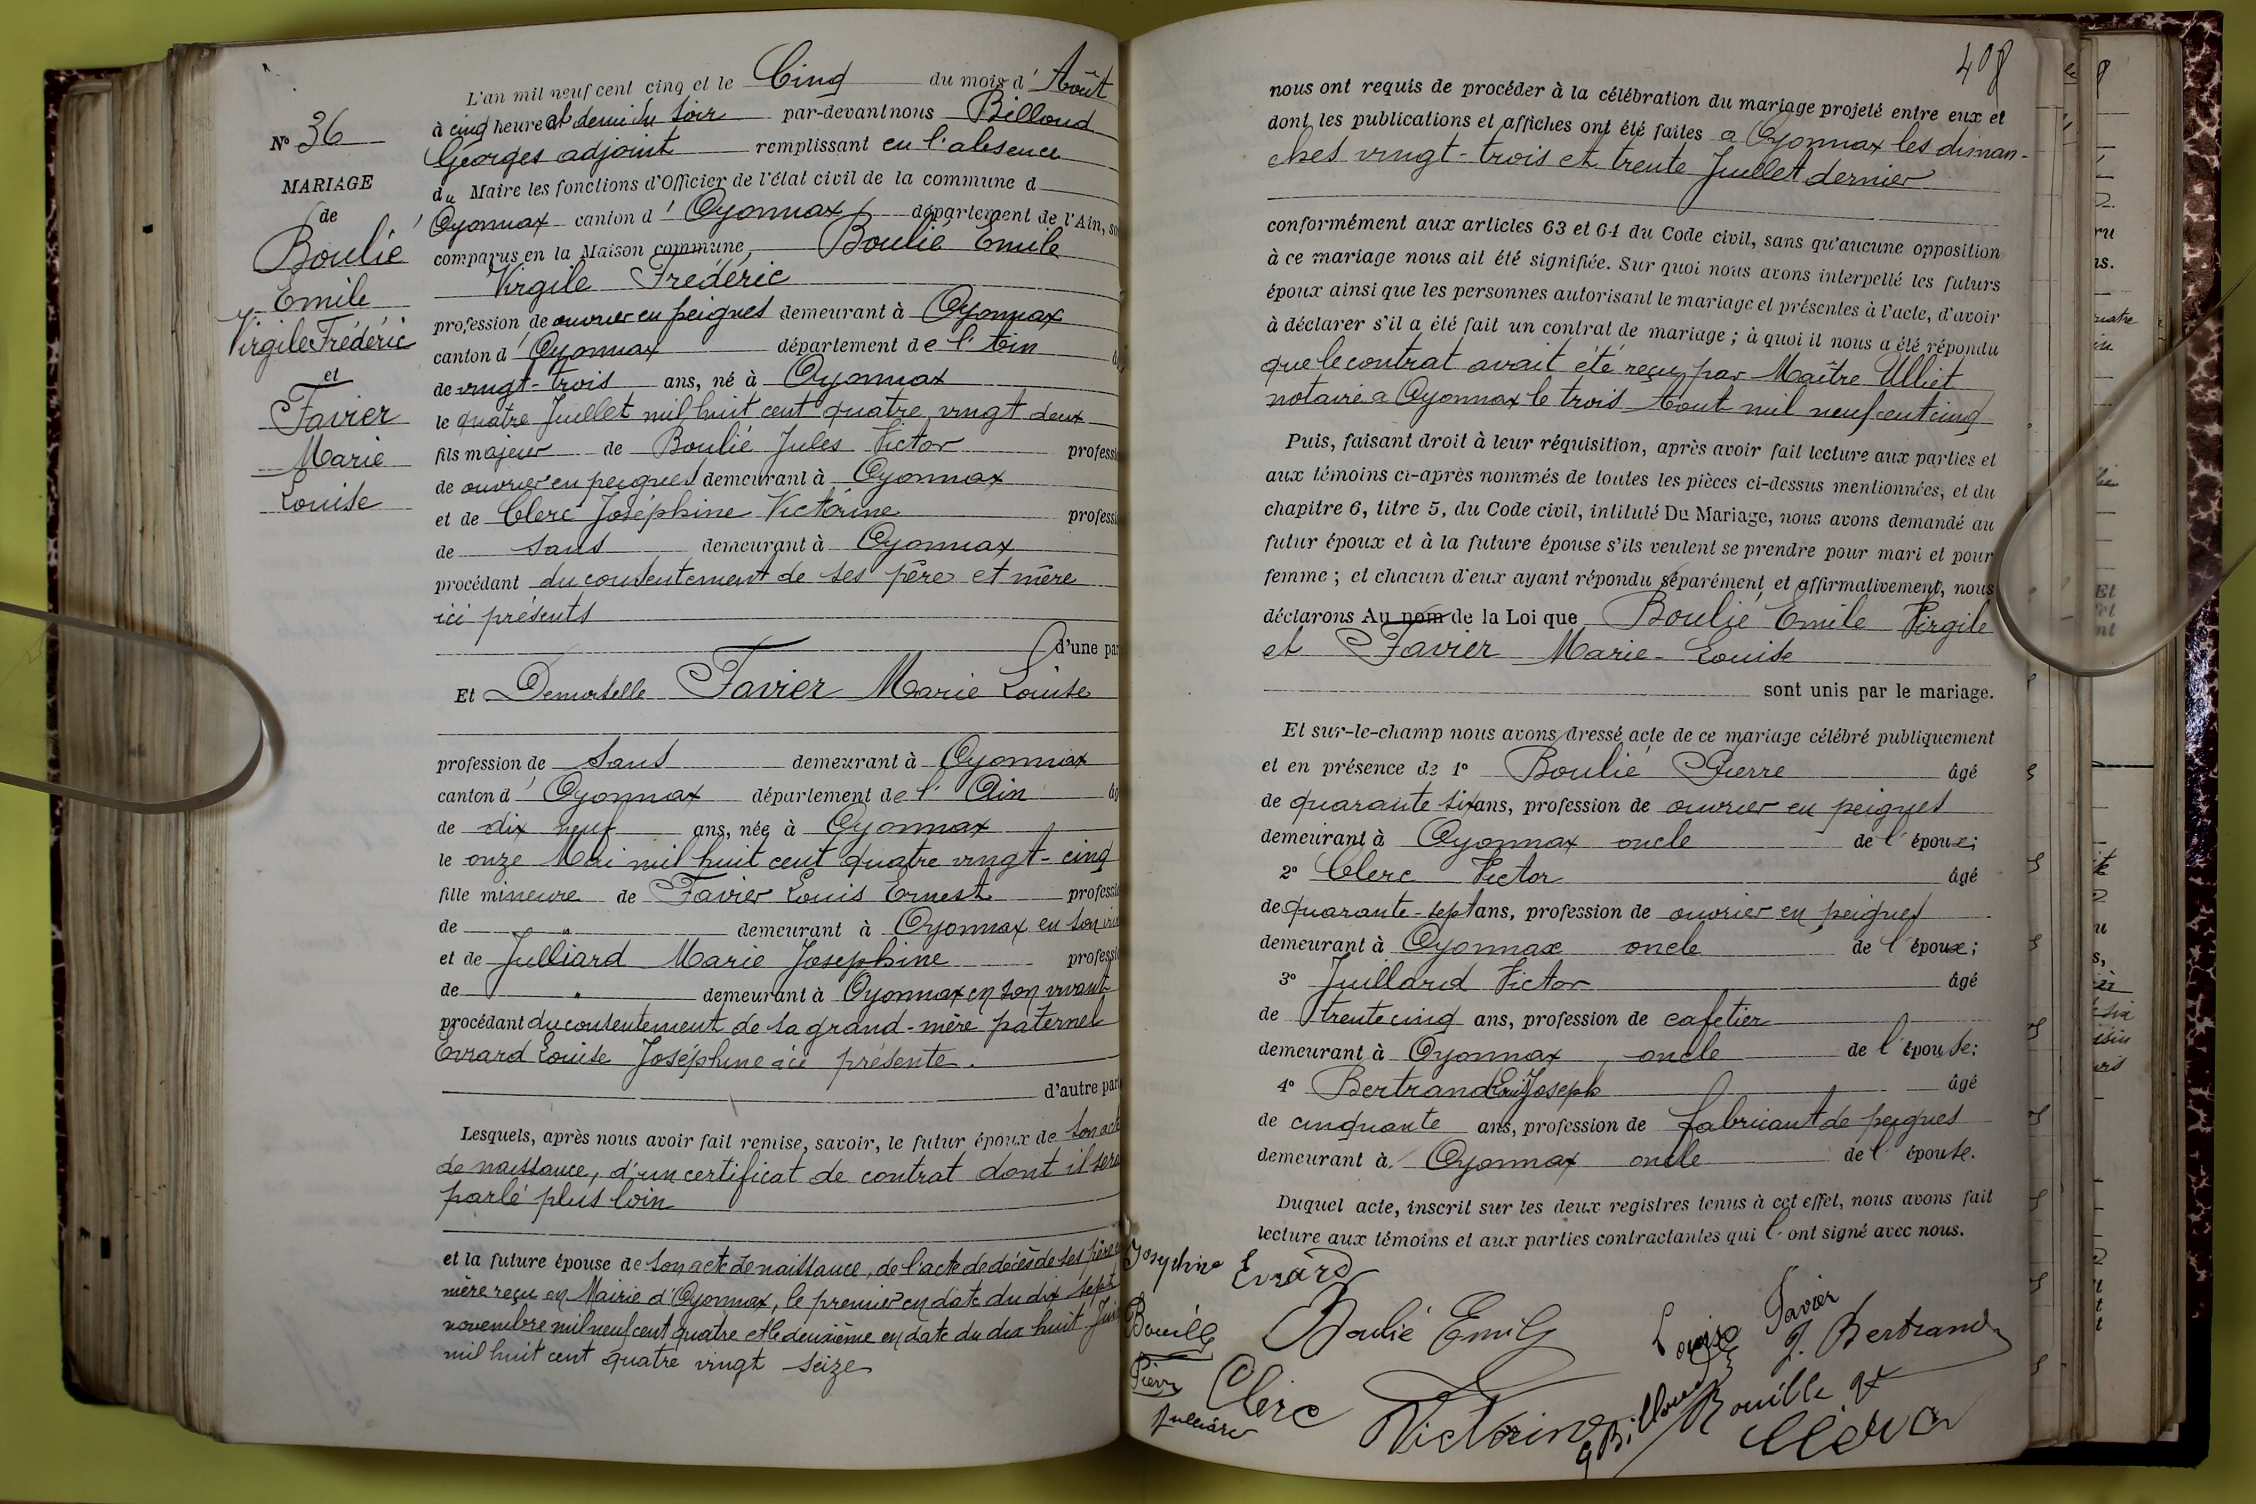 N° 36
MARIAGE
de
Boulié
Emile
Virgile Frédéric
et
Favier
Marie
Louise
L'an mil neuf cent cinq et le Cinq du mois d' Août
à cinq heure et demi du soir par-devant nous Billoud
Georges adjoint remplissant en l'absence
du Maire les fonctions d'Officier de l'état civil de la commune d
' Oyonnax canton d' Oyonnax département de l'Ain, so
comparus en la Maison commune, Boulié Emile
Virgile Frédéric
profession de ouvrier en peignes demeurant à Oyonnax
canton d' Oyonnax département de l' Ain
de vingt-trois ans, né à Oyonnax
le quatre Juillet mil huit cent quatre vingt deux
fils majeur de Boulié Jules Victor professi
de ouvrier en peignes demeurant à Oyonnax
et de Clerc Joséphine Victorine professi
de sans demeurant à Oyonnax
procédant du consentement de ses père et mère
ici présents
d'une par
Et Demoiselle Favier Marie Louise
profession de Sans demeurant à Oyonnax
canton d' Oyonnax département de l' Ain âg
de dix neuf ans, née à Oyonnax
le onze Mai mil huit cent quatre vingt-cinq
fille mineure de Favier Louis Ernest professi
de " demeurant à Oyonnax en son viv
et de Julliard Marie Josephine professi
de " demeurant à Oyonnax en son vivant
procédant du consentement de sa grand-mère paternel
Evrard Louise Joséphine ici présente.
d'autre part
Lesquels, après nous avoir fait remise, savoir, le futur époux de son acte
de naissance, d'un certificat de contrat dont il sera
parlé plus loin
et la future épouse de son acte de naissance, de l'acte de décès de ses père et
mère reçu en Mairie d'Oyonnax, le premier en date du dix sept
novembre mil neuf cent quatre et le deuxième en date du dix huit Juin
mil huit cent quatre vingt seize
408
nous ont requis de procéder à la célébration du mariage projeté entre eux et
dont les publications et affiches ont été faites a Oyonnax les diman-
ches vingt-trois et trente Juillet dernier
conformément aux articles 63 et 64 du Code civil, sans qu'aucune opposition
à ce mariage nous ait été signifiée. Sur quoi nous avons interpellé les futurs
époux ainsi que les personnes autorisant le mariage et présentes à l'acte, d'avoir
à déclarer s'il a été fait un contrat de mariage ; à quoi il nous a été répondu
que le contrat avait été reçu par Maître Ulliet
notaire a Oyonnax le trois Aout mil neuf cent cinq
Puis, faisant droit à leur réquisition, après avoir fait lecture aux parties et
aux témoins ci-après nommés de toutes les pièces ci-dessus mentionnées, et du
chapitre 6, titre 5, du Code civil, intitulé Du Mariage, nous avons demandé au
futur époux et à la future épouse s'ils veulent se prendre pour mari et pour
femme ; et chacun d'eux ayant répondu séparément et affirmativement, nous
déclarons Au nom de la Loi que Boulié Emile Virgile
et Favier Marie-Louise
sont unis par le mariage.
Et sur-le-champ nous avons dressé acte de ce mariage célébré publiquement
et en présence de 1° Boulié Pierre âgé
de quarante six ans, profession de ouvrier en peignes
demeurant à Oyonnax oncle de l'époux;
2° Clerc Victor âgé
de quarante-sept ans, profession de ouvrier en peignes
demeurant à Oyonnax oncle de l'époux;
3° Juillard Victor âgé
de trente cinq ans, profession de cafetier
demeurant à Oyonnax oncle de l'épouse;
4° Bertrand Louis Joseph âgé
de cinquante ans, profession de fabricant de peignes
demeurant à Oyonnax oncle de l'épouse.
Duquel acte, inscrit sur les deux registres tenus à cet effet, nous avons fait
lecture aux témoins et aux parties contractantes qui l'ont signé avec nous.
Josephine Evrard
Boulié Emile
Louise Favier
J. Bertrand
Pierre
Clerc Victorine
G Billoud